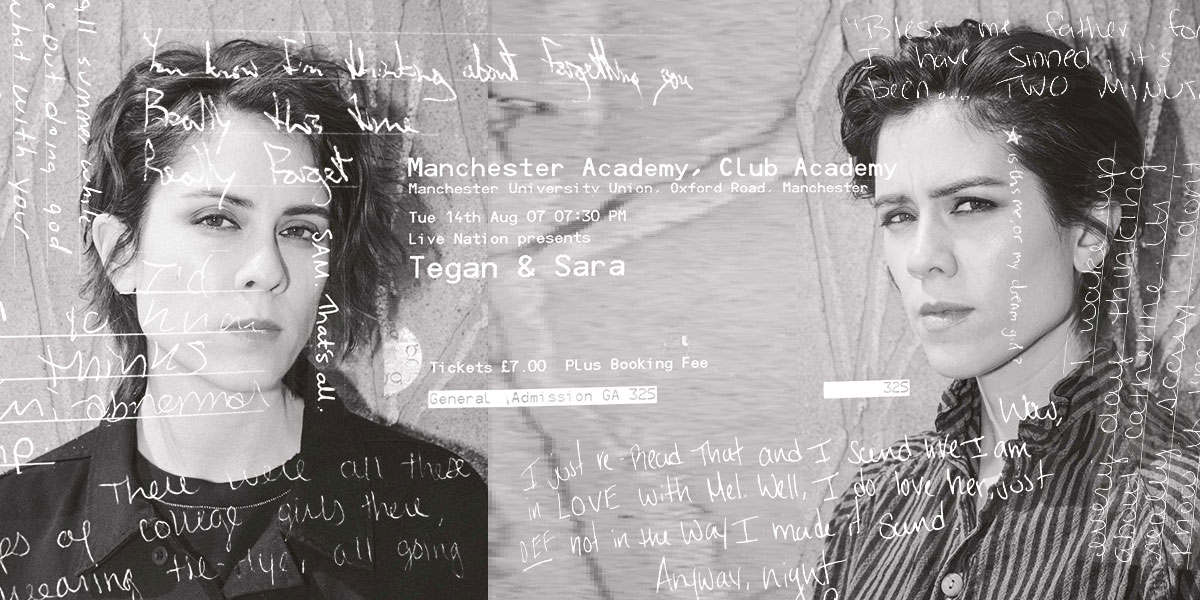 all summer while
e out doing god
what with your
You know I'm thinking about
you
Really this time
Really Forget
SAM. That's all.
I'd
to know
thinks
abnormal
There were all these
ps of college girls there,
wearing tie-dye, all going
Manchester Academy, Club Academy
Manchester University Union, Oxford Road, Manchester
Tue 14th Aug 07 07:30 PM
Live Nation presents
Tegan & Sara
Tickets £7.00 Plus Booking Fee
General ,Admission GA 325
325
I just re-Read That and I Sound like I am
in LOVE with Mel. Well, I do love her, just
DEF not in the Way I made it Sound.
Anyway, night
"Bless me father for
I have Sinned, it's
been... TWO MINUT
is this me or my dream girl?
Wow,
I wake up
every day thinking
about Catherine. It's
really scary. I don't
know